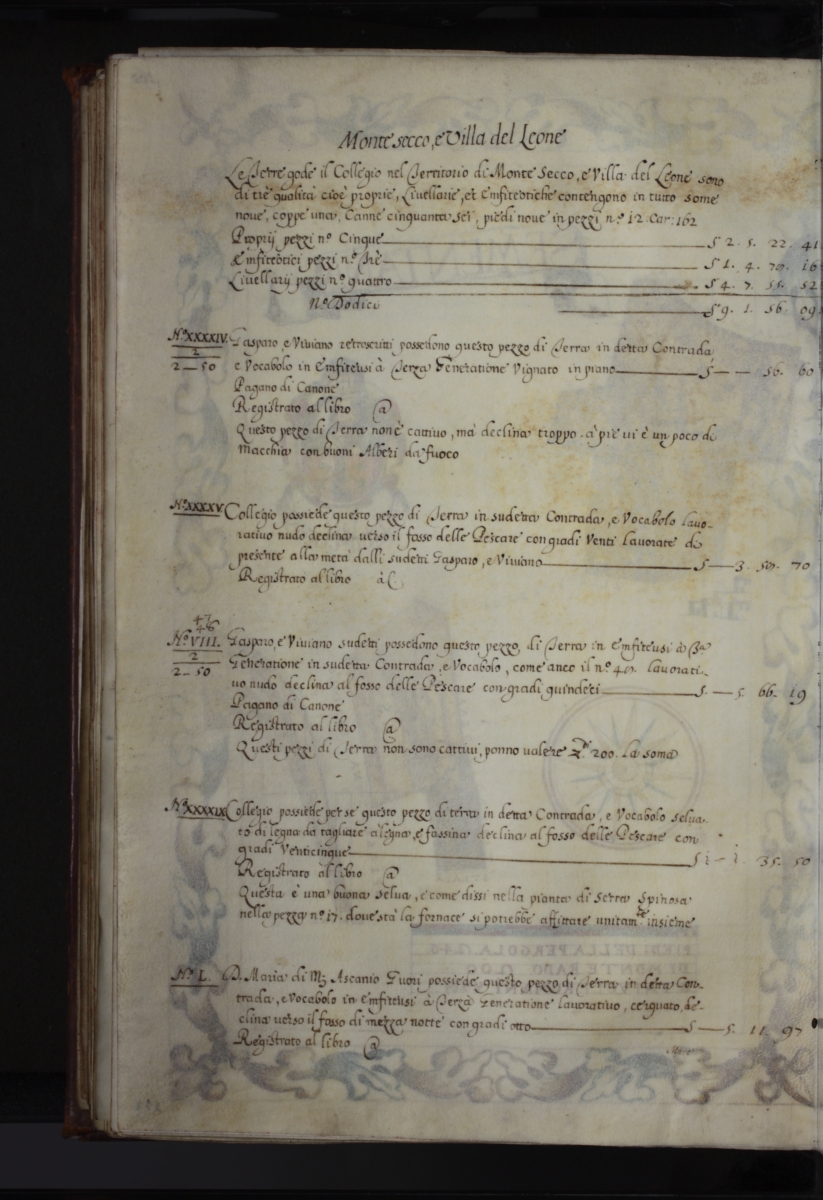 Monte secco, e Villa del Leone
Le Terre gode il Collegio nel Territorio di Monte Secco, e Villa del Leone sono
di trè qualità cioè proprie, Livellarie, et Emfiteotiche contengono in tutto some
nove, coppe una, Canne cinquanta sei, piedi nove in pezzi n.º 12. Car: 162
Proprij pezzi nº Cinque S 2. 5. 22. 41
Emfiteotici pezzi n.º Trè S 1. 4. 79. 16
Livellarij pezzi nº quattro S 4. 7. 55. 52
Nº Dodici S 9. 1. 56. 09
Nº XXXXIV. Gasparo, e Viviano retroscritti possedono questo pezzo di Terra in detta Contrada
2
2 — 50
e Vocabolo in Emfiteusi à Terza Generatione Vignato in piano S — — 56. 60
Pagano di Canone
Registrato al libro @
Questo pezzo di Terra non è cattivo, mà declina troppo. à piè vi è un poco di
Macchia con buoni Alberi da fuoco
Nº XXXXV. Collegio possiede questo pezzo di Terra in sudetta Contrada, e Vocabolo lavo-
rativo nudo declina verso il fosso delle Pescare con gradi Venti lavorate di
presente alla metà dalli sudetti Gasparo, e Viviano S — 3. 50. 70
Registrato al libro à C
47
46
Nº VIII. Gasparo, e Viviano sudetti possedono questo pezzo, di Terra in Emfiteusi à 3ª
2
2 — 50
Generatione in sudetta Contrada, e Vocabolo, come anco il n.º 47. lavorati-
vo nudo declina al fosso delle Pescare con gradi quindeci S. — 5. 66. 19
Pagano di Canone
Registrato al libro @
Questi pezzi di Terra non sono cattivi, ponno valere 200. la soma
Nº XXXXIX. Collegio possiede per se questo pezzo di terra in detta Contrada, e Vocabolo selva-
to di legna da tagliare a legna, e fassina declina al fosso delle Pescare con
gradi Venticinque S 1 — 1. 35. 50
Registrato al libro @
Questa è una buona selva, e come dissi nella pianta di Serra Spinosa
nella pezza nº 17. dove stà la fornace si potrebbe affittare unitamte insieme
Nº L. D. Maria di Mg Ascanio Fuori possiede questo pezzo di Terra in detta Con-
trada, e Vocabolo in Emfiteusi à Terza Generatione lavorativo, cerquato, de-
clina verso il fosso di mezza notte con gradi otto S — 5. 11. 97
Registrato al libro @